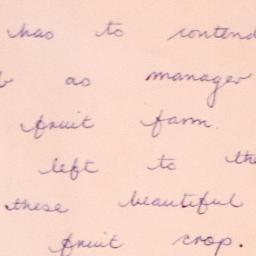 has to contend
as manager
fruit farm.
left to the
these beautiful
fruit crop.